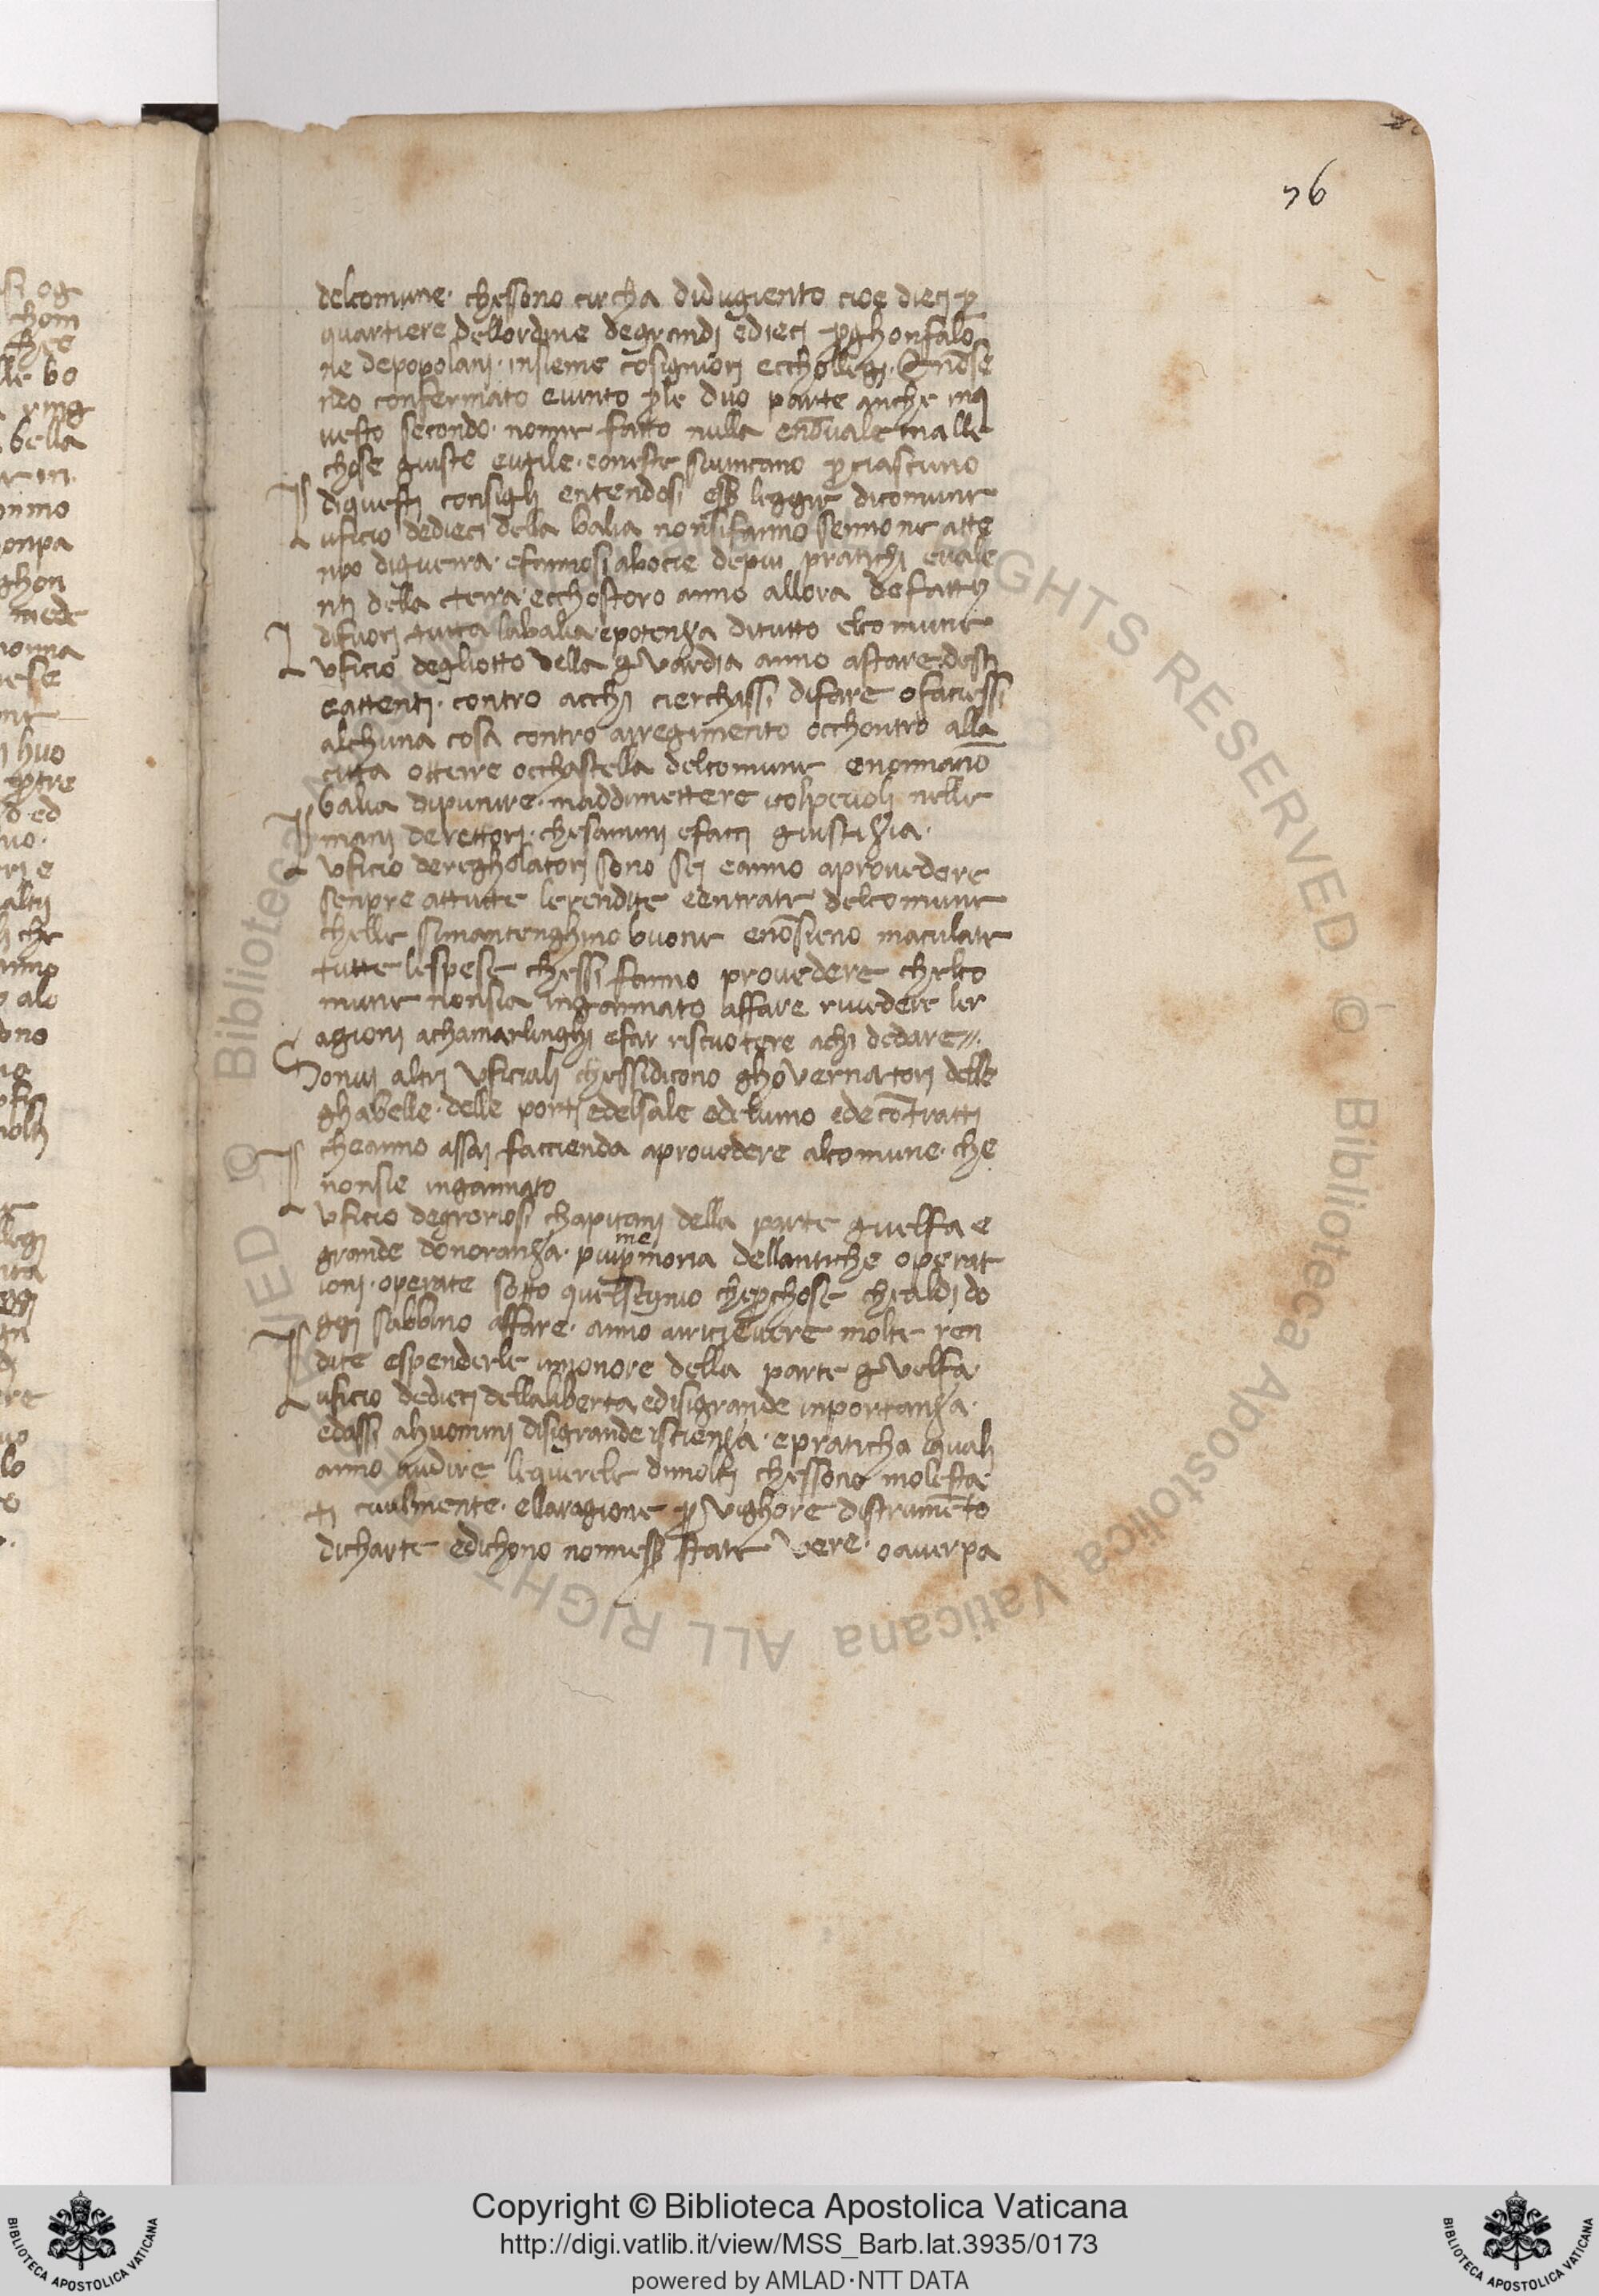 76
delcomune· chessono circha didugiento cioe dieci p
quartiere dellordine degrandi edieci pghonfalo
ne depopolani· insieme cosigniori ecchollegi· Enōse
ndo confermato evinto ple duo parte anche inq
uesto secondo· nonne fatto nulla enōvale malle
chose giuste eutile· eoneste sivincano pciascuno
diquesti consigli entendesi ess leggie dicomune
L uficio dedieci della balia nonsifanno sennone atte
npo diguerra· efannosi abocie depiu pratichi evale
nti della terra· ecchostoro anno allora defatti
difuori tutta labalia· epotenza ditutto elcomune
L uficio degliotto della guardia anno astare desti
eattenti· contro acchi cierchassi difare ofaciessi
alchuna cosa contro arregimento occhontro alla
citta otterre occhastella delcomune enonnanō
balia dipunire· maddimettere icolpevoli nelle
mani derettori· chesamini efacci giustizia·
L uficio deregholatori sono sei eanno aprovedere
senpre attutte lerendite edentrate delcomune
chelle simantenghino buone enōsieno maculate
tutte lespese chessi fanno provedere chelco
mune nonsia ingannato affare rivedere ler
agioni achamarlinghi efar riscuotere achi dedare
Sonvi altri uficiali chessidicono ghovernatori delle
ghabelle· delle porti edelsale edelvino edecōtratti
cheanno assai faccienda aprovedere alcomune· che
nonsie ingannato
L uficio degroriosi chapitani della parte guelfa e
grande donoranza· piupmemoria dellantiche operat
ioni· operate sotto quelsegnio chepchose chealdido
ggi sabbino affare· anno aricievere molte ren
dite espenderle innonore della parte guelfa·
L uficio dedieci dellaliberta edisigrande inportanza·
edassi ahuomini disigrande iscienza· epraticha iquali
anno audire lequerele dimolti chessono molesta
ti civilmente· ellaragione p vighore distrumēto
dicharte edichono nonness state vere· oaverpa
Copyright © Biblioteca Apostolica Vaticana
http://digi.vatlib.it/view/MSS_Barb.lat.3935/0173
powered by AMLAD·NTT DATA